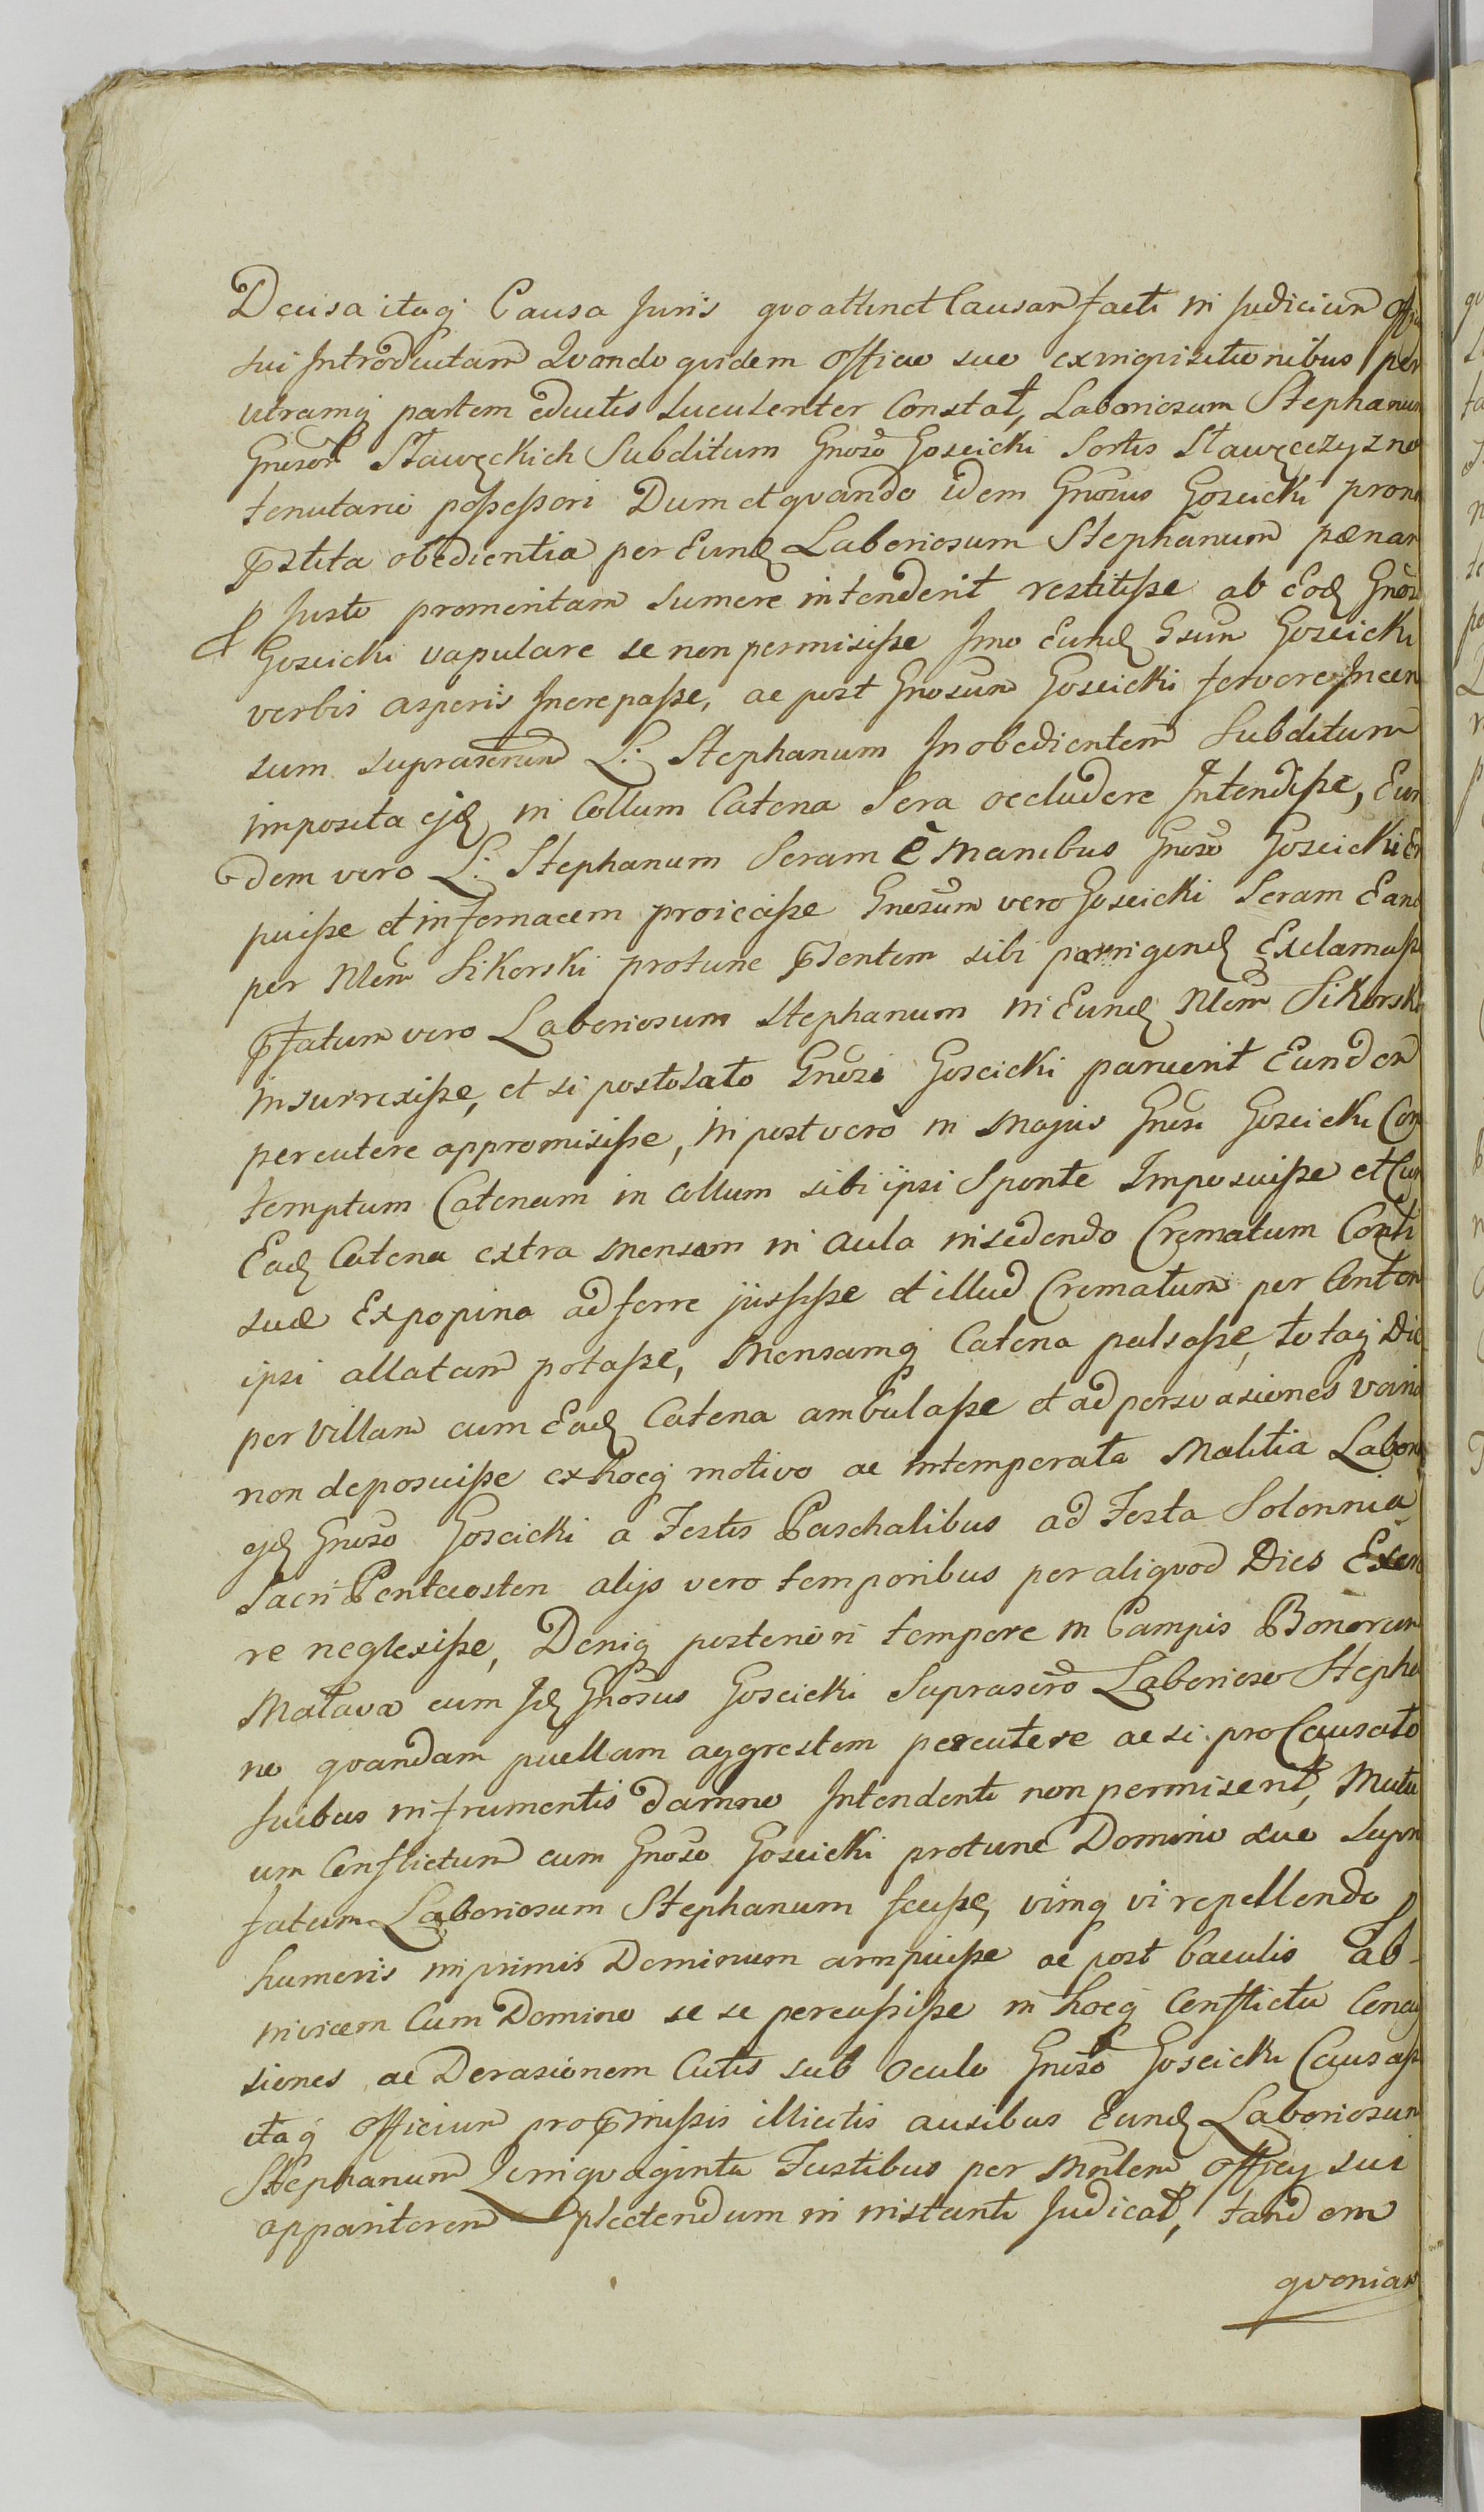 Decisa itaq Causa Juris qvo attinet Causam facti in Judicium
sui Introductam Qvando qvidem Officio suo ex inqvisitionibus per
utramq partem eductis luculenter Constat, Laboriosum Stephanum
Gnrosor Stawęckich Subditum Gnoso Goscicki Sortis Stawęczyzno
tenutario possessori Dum et qvando idem Gnosus Goscicki pro non
pstita obedientia per Eund Laboriosum Stephanum pænam
p Juste promeritam sumere intenderit restitisse ab Eod Gnoso
Goscicki vapulare se non permisisse Imo Eund Gsum Goscicki
verbis asperis Increpasse, ac post Gnosum Goscicki fervore Incen
sum suprascrium L: Stephanum Inobedientem Subditum
imposita ejd in Collum Catena Sera occludere Intendisse, Eun
dem vero L: Stephanum Seram è Manibus Gnoso Goscicki Eri
puisse et in fornacem proiecisse Gnosum vero Goscicki Seram Eand
per Nlem Sikorski protunc psentem sibi porrigend Exclamasse
pfatum vero Laboriosum Stephanum in Eund Nlem Sikorski
insurrexisse, et si postulato Gnosi Goscicki paruerit Eundem
percutere appromisisse, in post vero in Majus Gnosi Goscicki Con
temptum Catenam in Collum sibi ipsi Sponte Imposuisse et Cum
Ead Catena extra Mensam in Aula insedendo Crematum Conti
suæ Ex popina adferre jussisse et illud Crematum per Conten
ipsi allatam potasse, Mensamq Catena pulsasse, totaq Die
per Villam cum Ead Catena ambulasse et ad persvasiones varias
non deposuisse ex hocq motivo ac intemperata Malitia Labores
ejd Gnoso Goscicki a Festis Paschalibus ad Festa Solennia
Sacri Pentecosten alijs vero temporibus per aliqvod Dies Exerce
re neglexisse, Deniq posteriori tempore in Campis Bonorum
Matava cum Id Gnosus Goscicki Suprascro Laborioso Stepha
no qvandam puellam aggrestem percutere ac si pro Causato
suibus in frumentis damno Intendenti non permiserit, Mutu
um Conflictum cum Gnoso Goscicki protunc Domino suo supra
fatum Laboriosum Stephanum fecisse, vimq vi repellendo p
humeris inprimis Dominum arripuisse ac post baculis ab
invicem Cum Domino se se percussisse in hocq Conflictu Concus
siones ac Derasionem Cutis sub Oculo Gnoso Goscicki Causasse
itaq Officium pro pmissis illicitis ausibus Eund Laboriosum
Stephanum Qvinqvaginta Fustibus per Mnlem Officy sui
apparitorem plectendum in instanti Judicat, tandem
qvoniam